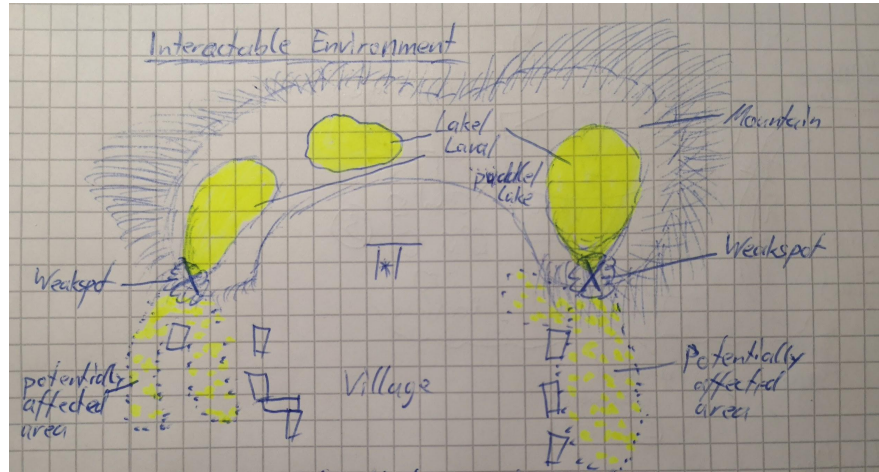 Interactable Environment
Lakel
Laval
puddel
Lake
Mountain
Weakspot
Weakspot
Village
potentially
affected
area
Potentially
affected
area